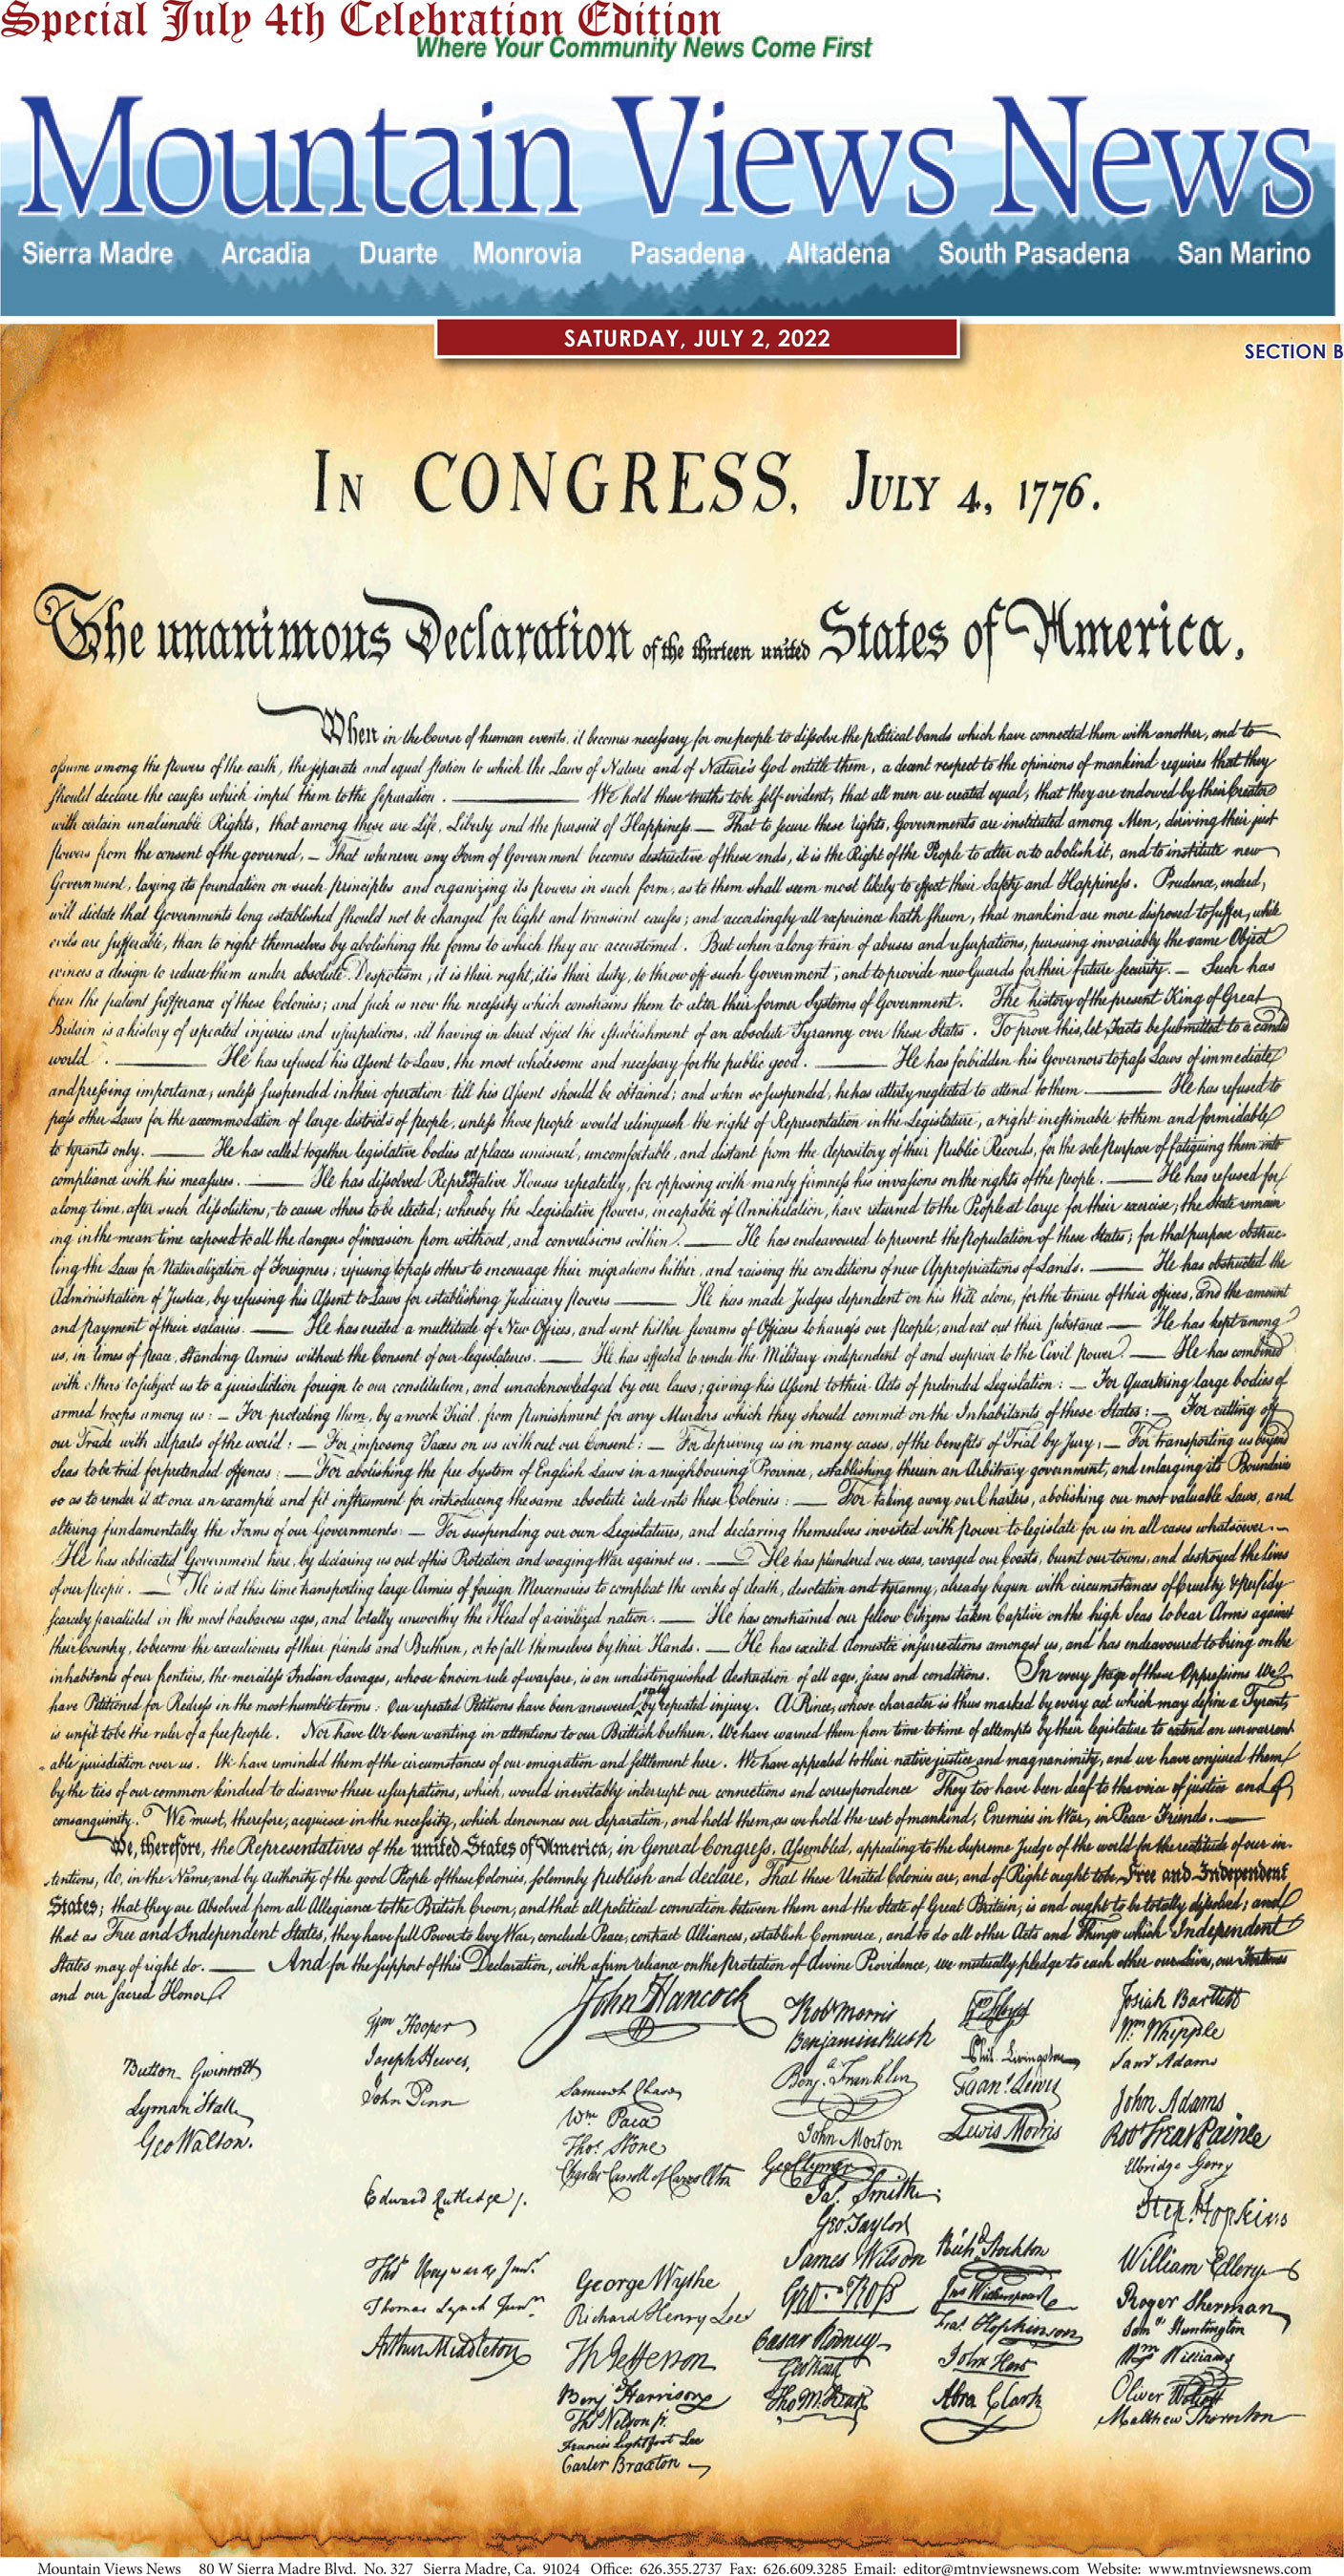 Special July 4th Celebration Edition
Where Your Community News Come First
Mountain Views News
Sierra Madre Arcadia Duarte Monrovia Pasadena Altadena South Pasadena San Marino
SATURDAY, JULY 2, 2022
SECTION B
IN CONGRESS, JULY 4, 1776.
The unanimous Declaration of the thirteen united States of America,
When in the Course of human events, it becomes necessary for one people to dissolve the political bands which have connected them with another, and to
assume among the powers of the earth, the separate and equal station to which the Laws of Nature and of Nature's God entitle them, a decent respect to the opinions of mankind requires that they
should declare the causes which impel them to the separation. ——— We hold these truths to be self-evident, that all men are created equal, that they are endowed by their Creator
with certain unalienable Rights, that among these are Life, Liberty and the pursuit of Happiness. — That to secure these rights, Governments are instituted among Men, deriving their just
powers from the consent of the governed, — That whenever any Form of Government becomes destructive of these ends, it is the Right of the People to alter or to abolish it, and to institute new
Government, laying its foundation on such principles and organizing its powers in such form, as to them shall seem most likely to effect their Safety and Happiness. Prudence, indeed,
will dictate that Governments long established should not be changed for light and transient causes; and accordingly all experience hath shewn, that mankind are more disposed to suffer, while
evils are sufferable, than to right themselves by abolishing the forms to which they are accustomed. But when a long train of abuses and usurpations, pursuing invariably the same Object
evinces a design to reduce them under absolute Despotism, it is their right, it is their duty, to throw off such Government, and to provide new Guards for their future security. — Such has
been the patient sufferance of these Colonies; and such is now the necessity which constrains them to alter their former Systems of Government. The history of the present King of Great
Britain is a history of repeated injuries and usurpations, all having in direct object the establishment of an absolute Tyranny over these States. To prove this, let Facts be submitted to a candid
world. ——— He has refused his Assent to Laws, the most wholesome and necessary for the public good. ——— He has forbidden his Governors to pass Laws of immediate
and pressing importance, unless suspended in their operation till his Assent should be obtained; and when so suspended, he has utterly neglected to attend to them ——— He has refused to
pass other Laws for the accommodation of large districts of people, unless those people would relinquish the right of Representation in the Legislature, a right inestimable to them and formidable
to tyrants only. ——— He has called together legislative bodies at places unusual, uncomfortable, and distant from the depository of their Public Records, for the sole purpose of fatiguing them into
compliance with his measures. ——— He has dissolved Representative Houses repeatedly, for opposing with manly firmness his invasions on the rights of the people. ——— He has refused for
a long time, after such dissolutions, to cause others to be elected; whereby the Legislative powers, incapable of Annihilation, have returned to the People at large for their exercise; the State remain
ing in the mean time exposed to all the dangers of invasion from without, and convulsions within. ——— He has endeavoured to prevent the population of these States; for that purpose obstruc-
ting the Laws for Naturalization of Foreigners; refusing to pass others to encourage their migrations hither, and raising the conditions of new Appropriations of Lands. ——— He has obstructed the
Administration of Justice, by refusing his Assent to Laws for establishing Judiciary powers ——— He has made Judges dependent on his Will alone, for the tenure of their offices, and the amount
and payment of their salaries. ——— He has erected a multitude of New Offices, and sent hither swarms of Officers to harrass our people, and eat out their substance ——— He has kept among
us, in times of peace, Standing Armies without the Consent of our legislatures. ——— He has affected to render the Military independent of and superior to the Civil power. ——— He has combined
with others to subject us to a jurisdiction foreign to our constitution, and unacknowledged by our laws; giving his Assent to their Acts of pretended Legislation: — For Quartering large bodies of
armed troops among us: — For protecting them, by a mock Trial, from punishment for any Murders which they should commit on the Inhabitants of these States: — For cutting off
our Trade with all parts of the world: — For imposing Taxes on us without our Consent: — For depriving us in many cases, of the benefits of Trial by Jury; — For transporting us beyond
Seas to be tried for pretended offences: — For abolishing the free System of English Laws in a neighbouring Province, establishing therein an Arbitrary government, and enlarging its Boundaries
so as to render it at once an example and fit instrument for introducing the same absolute rule into these Colonies: — For taking away our Charters, abolishing our most valuable Laws, and
altering fundamentally the Forms of our Governments: — For suspending our own Legislatures, and declaring themselves invested with power to legislate for us in all cases whatsoever. —
He has abdicated Government here, by declaring us out of his Protection and waging War against us. — He has plundered our seas, ravaged our Coasts, burnt our towns, and destroyed the lives
of our people. — He is at this time transporting large Armies of foreign Mercenaries to compleat the works of death, desolation and tyranny, already begun with circumstances of Cruelty & perfidy
scarcely paralleled in the most barbarous ages, and totally unworthy the Head of a civilized nation. — He has constrained our fellow Citizens taken Captive on the high Seas to bear Arms against
their Country, to become the executioners of their friends and Brethren, or to fall themselves by their Hands. — He has excited domestic insurrections amongst us, and has endeavoured to bring on the
inhabitants of our frontiers, the merciless Indian Savages, whose known rule of warfare, is an undistinguished destruction of all ages, sexes and conditions. In every stage of these Oppressions We
have Petitioned for Redress in the most humble terms: Our repeated Petitions have been answered only by repeated injury. A Prince, whose character is thus marked by every act which may define a Tyrant,
is unfit to be the ruler of a free people. Nor have We been wanting in attentions to our Brittish brethren. We have warned them from time to time of attempts by their legislature to extend an unwarrant-
able jurisdiction over us. We have reminded them of the circumstances of our emigration and settlement here. We have appealed to their native justice and magnanimity, and we have conjured them
by the ties of our common kindred to disavow these usurpations, which, would inevitably interrupt our connections and correspondence They too have been deaf to the voice of justice and of
consanguinity. We must, therefore, acquiesce in the necessity, which denounces our Separation, and hold them, as we hold the rest of mankind, Enemies in War, in Peace Friends. —
We, therefore, the Representatives of the united States of America, in General Congress, Assembled, appealing to the Supreme Judge of the world for the rectitude of our in-
tentions, do, in the Name, and by Authority of the good People of these Colonies, solemnly publish and declare, That these United Colonies are, and of Right ought to be Free and Independent
States; that they are Absolved from all Allegiance to the British Crown, and that all political connection between them and the State of Great Britain, is and ought to be totally dissolved; and
that as Free and Independent States, they have full Power to levy War, conclude Peace, contract Alliances, establish Commerce, and to do all other Acts and Things which Independent
States may of right do. ——— And for the support of this Declaration, with a firm reliance on the Protection of divine Providence, we mutually pledge to each other our Lives, our Fortunes
and our sacred Honor
Button Gwinnett
Lyman Hall
Geo Walton.
Wm Hooper
Joseph Hewes,
John Penn
Edward Rutledge /.
Thos Heyward Junr.
Thomas Lynch Junr.
Arthur Middleton
John Hancock
Samuel Chase
Wm. Paca
Thos. Stone
Charles Carroll of Carrollton
George Wythe
Richard Henry Lee
Th Jefferson
Benj Harrison
Thos Nelson jr.
Francis Lightfoot Lee
Carter Braxton
Robt Morris
Benjamin Rush
Benj. Franklin
John Morton
Geo Clymer
Jas. Smith
Geo. Taylor
James Wilson
Geo. Ross
Caesar Rodney
Geo Read
Tho M:Kean
Wm Floyd
Phil. Livingston
Frans. Lewis
Lewis Morris
Richd. Stockton
Jno Witherspoon
Fras. Hopkinson
John Hart
Abra Clark
Josiah Bartlett
Wm. Whipple
Saml Adams
John Adams
Robt Treat Paine
Elbridge Gerry
Step. Hopkins
William Ellery
Roger Sherman
Saml Huntington
Wm Williams
Oliver Wolcott
Matthew Thornton
Mountain Views News 80 W Sierra Madre Blvd. No. 327 Sierra Madre, Ca. 91024 Office: 626.355.2737 Fax: 626.609.3285 Email: editor@mtnviewsnews.com Website: www.mtnviewsnews.com